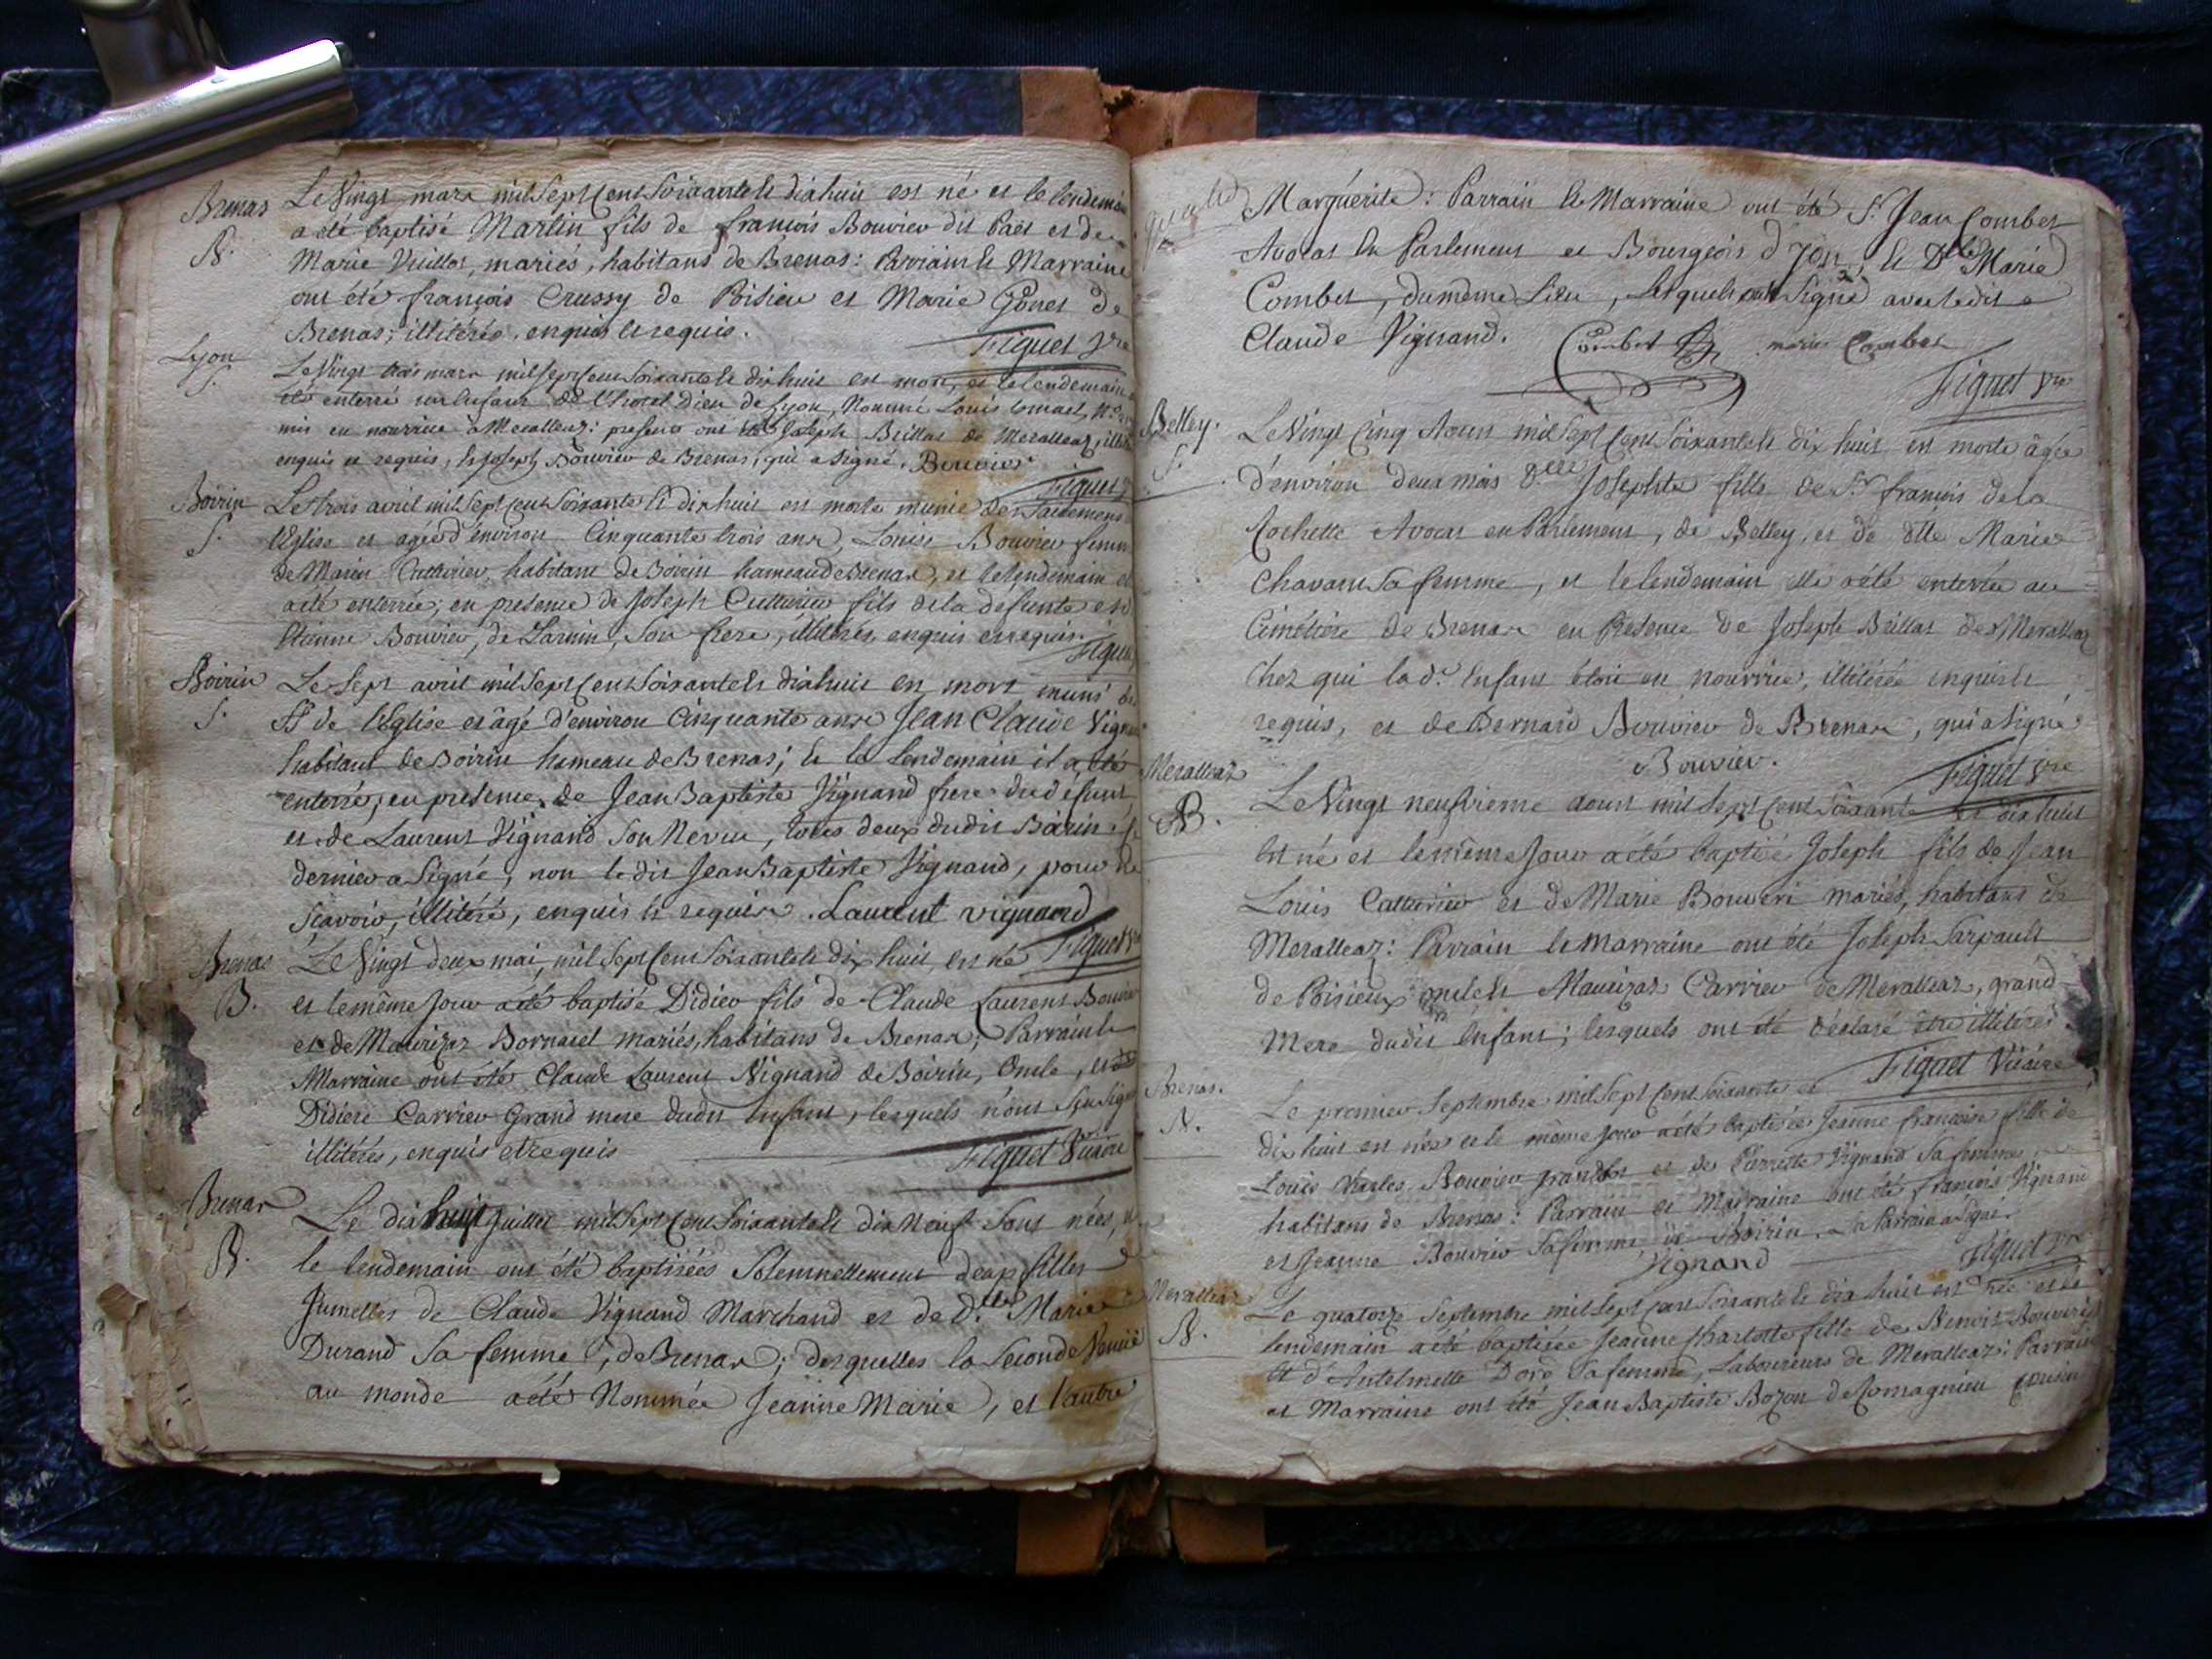 Brenas
B.
Le Vingt mars mil Sept Cent Soixante et dix huit est né et le lendemain
a été baptisé Martin fils de françois Bouvier dit Paët et de
Marie Vuillot, mariés, habitans de Brenas: Parrain et Marraine
ont été françois Crussy de Poisieu et Marie Gonet de
Brenas; illitérés, enquis et requis.
Figuet vre
Lyon
S.
Le Vingt trois mars mil Sept Cent Soixante et dix huit est mort, et le lendemain a
été enterré un Enfant de l'hotel Dieu de Lyon, Nommé Louis
mis en nourrice à Meralleaz: presens ont été Joseph Brillat de Meralleaz, illit
enquis et requis, et Joseph Bouvier de Brenas, qui a signé. Bouvier
Figuet
Boirin
S.
Le trois avril mil Sept Cent Soixante et dix huit est morte munie des Sacremens de
l'Eglise et agée d'environ Cinquante trois ans, Louise Bouvier femme
de Marin Cutturier, habitant de Boirin hameau de Brenas, et le lendemain
a été enterrée; en presence de Joseph Cutturier fils de la defunte et d'
Etienne Bouvier, de Larnin, Son frere, illitérés, enquis et requis.
Figuet
Boirin
S.
Le Sept avril mil Sept Cent Soixante et dix huit est mort muni des
Sts de l'Eglise et âgé d'environ Cinquante ans Jean Claude Vignand
habitant de Boirin hameau de Brenas; et le lendemain il a été
enterré, en presence de Jean Baptiste Vignand frere du défunt,
et de Laurent Vignand Son Neveu, tous deux dudit Boirin
dernier a Signé, non ledit Jean Baptiste Vignand, pour ne
Sçavoir, illitéré, enquis et requis. Laurent vignand
Figuet vre
Brenas
B.
Le Vingt deux mai, mil Sept Cent Soixante et dix huit, est né
et le même Jour a été baptisé Didier fils de Claude Laurent Bouvier
et de Maurizaz Bornarel mariés, habitans de Brenas; Parrain et
Marraine ont été Claude Laurent Vignand de Boirin, Oncle, et
Didiere Carrier Grand mere dudit Enfant, lesquels n'ont Sçu Signer
illitérés, enquis et requis
Figuet Vicaire
Brenas
B.
Le dix huit Juillet mil Sept Cent Soixante et dix Neuf Sont nées, et
le lendemain ont été baptisées Solemnellement deux filles
Jumelles de Claude Vignand Marchand et de d.lle Marie
Durand Sa femme, de Brenas; desquelles la Seconde Venuë
au monde a été Nommée Jeanne Marie, et l'autre
Marguérite: Parrain et Marraine ont été Sr. Jean Combet
Avocat En Parlement et Bourgeois d'Yon, et Dlle Marie
Combet, du même Lieu, Lesquels ont Signé avec ledit
Claude Vignand.
Combet
marie Combet
Figuet vre
Belley.
S.
Le Vingt Cinq Aoust mil Sept Cent Soixante et dix huit est morte âgée
d'environ deux mois d.elle Josephte fille de Sr. françois de la
Rochette Avocat en Parlement, de Belley, et de dlle Marie
Chavant Sa femme, et le lendemain elle a été enterrée au
Cimétière de Brenas en Présence de Joseph Brillat de Meralleaz
chez qui la de. Enfant étoit en nourrice, illitéré enquis et
requis, et de Bernard Bouvier de Brenas, qui a signé
Bouvier.
Figuet vre
Meralleaz
B.
Le Vingt neufvieme aoust mil Sept Cent Soixante et dix huit
Est né et le même Jour a été baptisé Joseph fils de Jean
Louis Cutturier et de Marie Bouveri mariés, habitans de
Meralleaz: Parrain et marraine ont été Joseph Sarpault
de Poisieux et Maurizaz Carrier de Meralleaz, grand
Mere dudit Enfant; lesquels ont été déclaré être illitérés
Figuet Vicaire
Brenas.
B.
Le premier Septembre mil Sept Cent Soixante et
dix huit est née et le même Jour a été baptisée Jeanne françoise fille de
Louis Charles Bouvier et de Pierrette Vignand Sa femme
habitans de Brenas: Parrain et Marraine ont été françois Vignand
et Jeanne Bouvier Sa femme de Boirin. Le Parrain a Signé.
Vignand
Figuet vre
Meralleaz
B.
Le quatorze Septembre mil Sept Cent Soixante et dix huit est née et le
lendemain a été baptisée Jeanne Charlotte fille de Benoit Bouveri
Et d'Antelmette Doré Sa femme, Laboureurs de Meralleaz: Parrain
et Marraine ont été Jean Baptiste Bozon de Lomagnieu